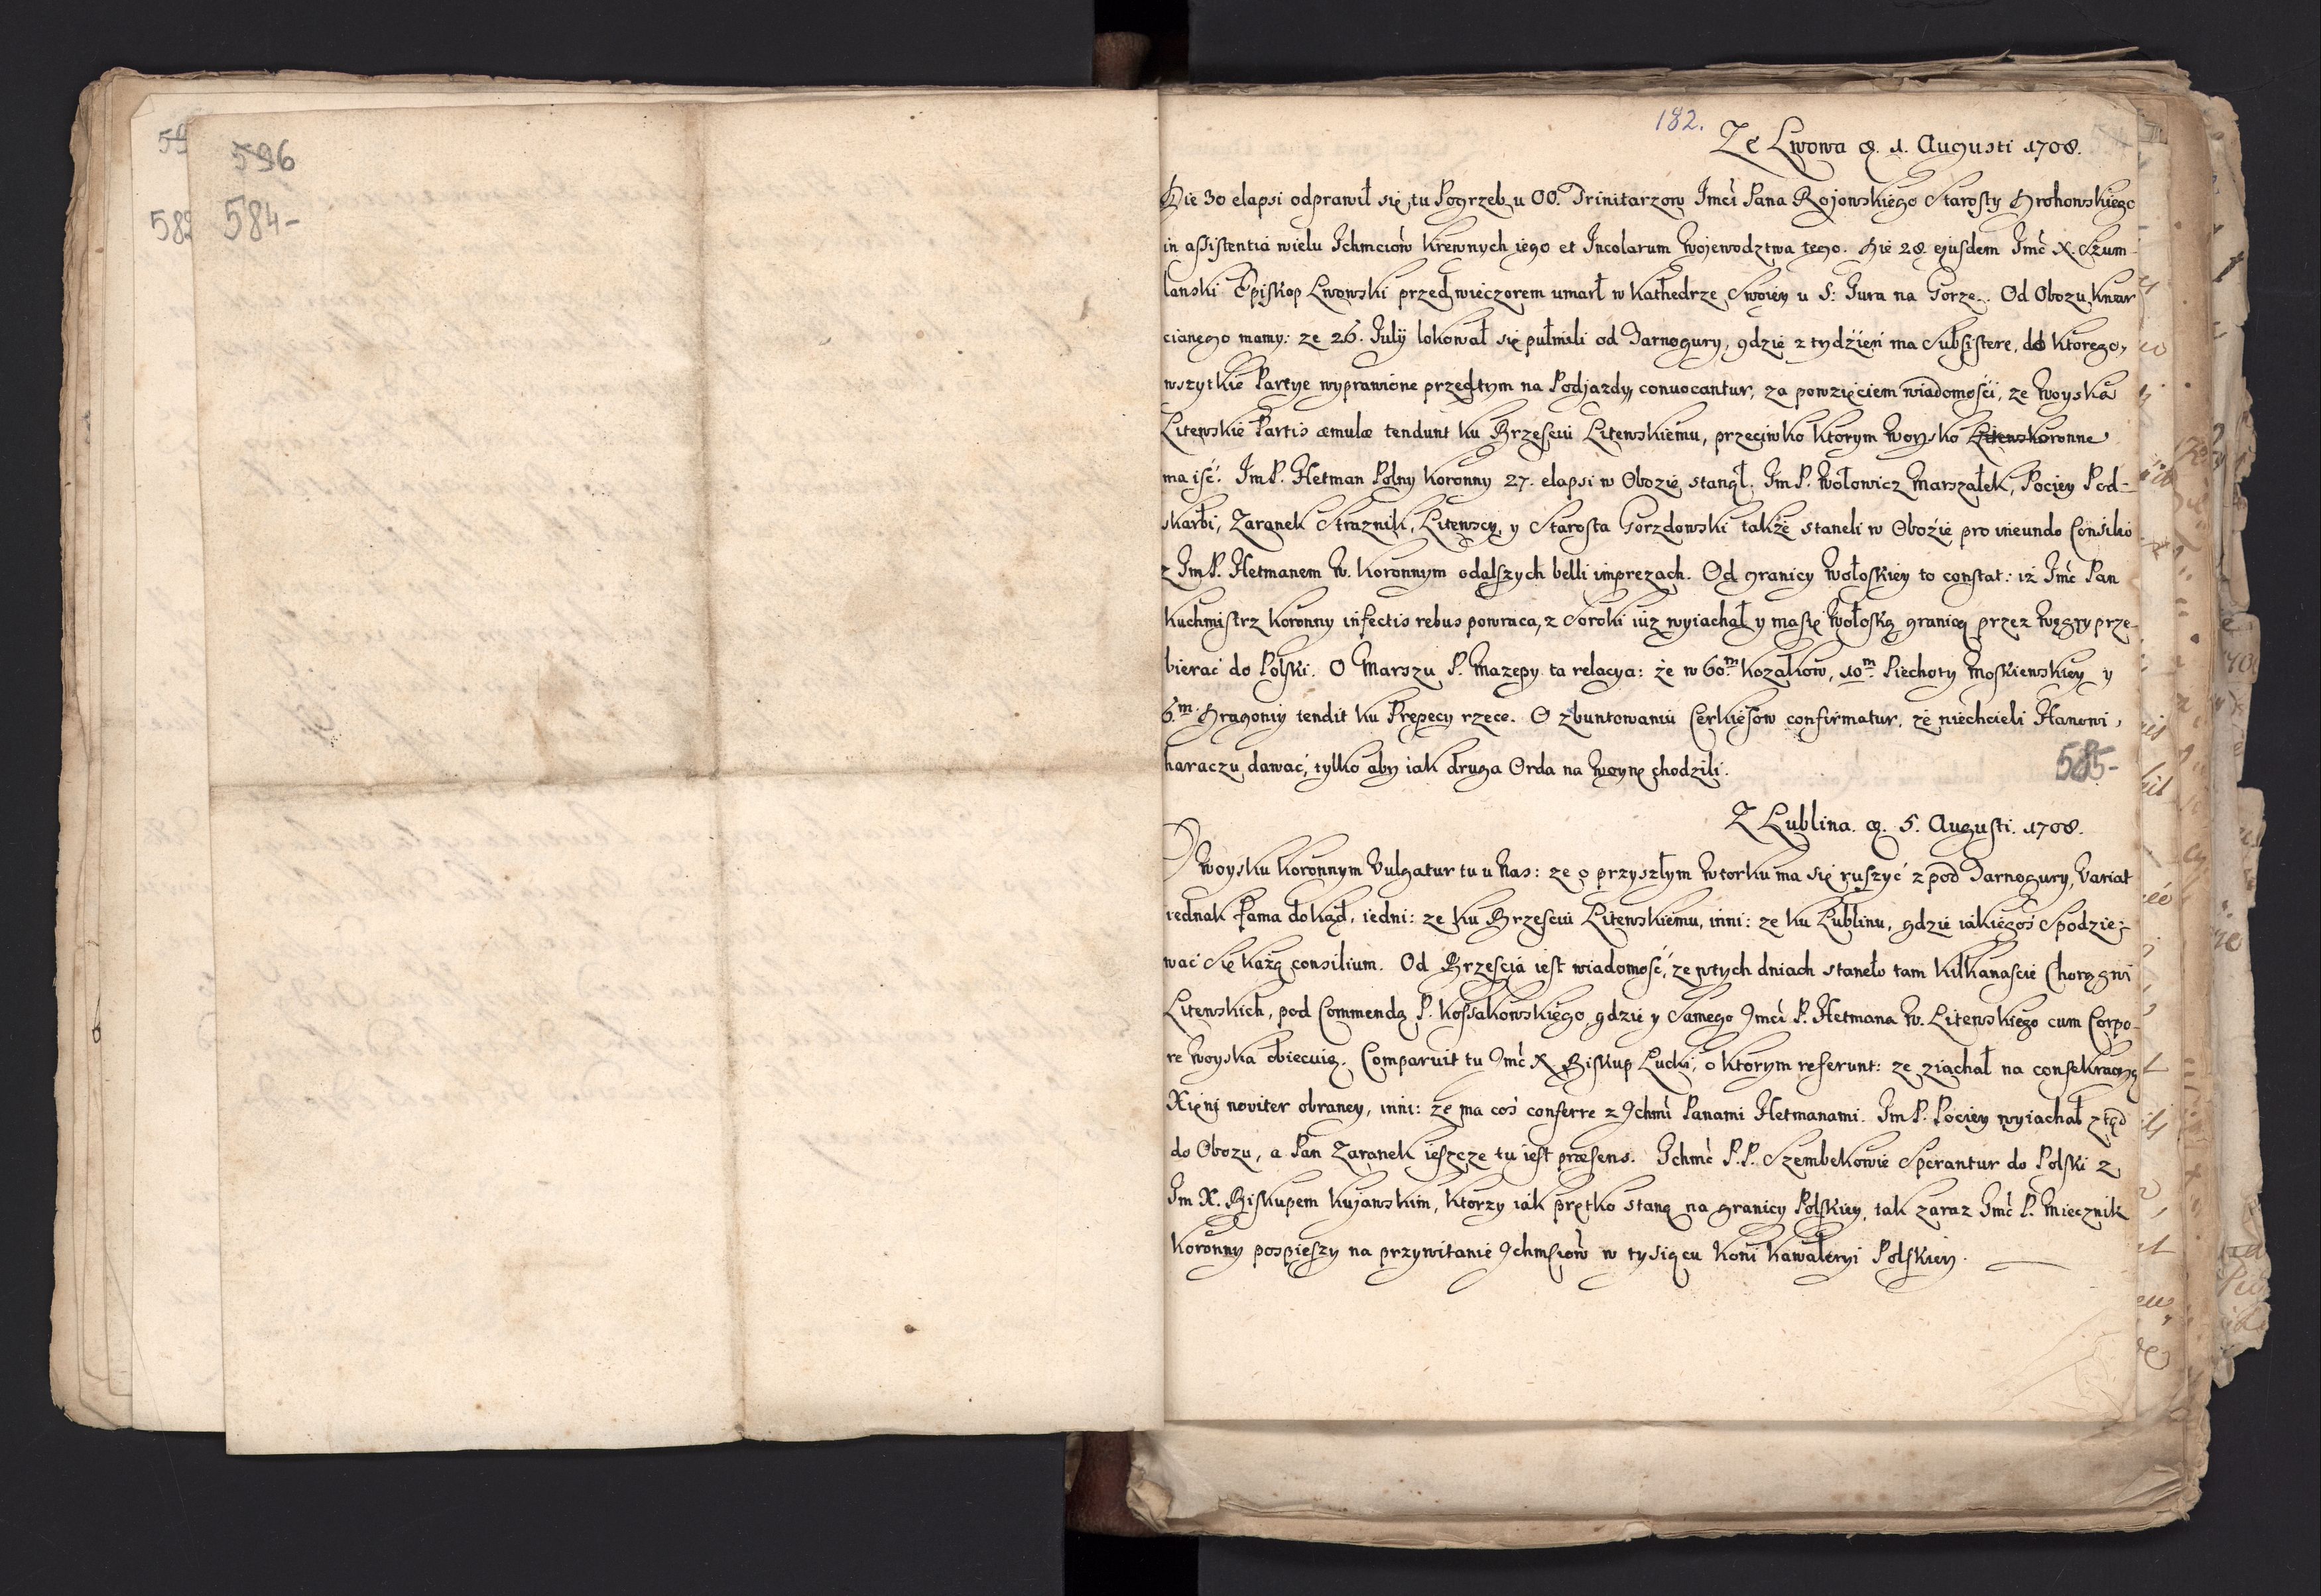 596
584-
182.
Ze Lwowa d. 1. Augusti 1708.
Die 30 elapsi odprawił się tu Pogrzeb u OO. Trinitarzow Imci Pana Rojowskiego Starosty Drohowskiego
in assistentia wielu Ichmciow Krewnych iego et Incolarum Wojewodztwa tego. Die 28. ejusdem Imć X. Szum-
lanski Episkop Lwowski przed wieczorem umarł w Kathedrze Swoiey u S: Jura na Gorze. Od Obozu Kwar
cianego mamy: ze 26. July lokował się pułmili od Tarnogury, gdzie z tydzień ma Subsistere, do ktorego,
wszytkie Partye wyprawione przedtym na Podjazdy convocantur, za powzięciem wiadomości, ze Woyska
Litewskie Partis æmulæ tendunt ku Brzesciu Litewskiemu, przeciwko ktorym Woysko Litewskoronne
ma iść. Im P. Hetman Polny Koronny 27. elapsi w Obozie stanął. Im P. Wołowicz Marszałek, Pociey Pod-
skarbi, Zaranek Straznik, Litewscy, y Starosta Gorzdowski także staneli w Obozie pro ineundo Consilio
z Im P. Hetmanem W. Koronnym odalszych belli imprezach. Od granicy Wołoskiey to constat: iż Imć Pan
Kuchmistrz Koronny infectis rebus powraca, z Soroki iuz wyiachał y masię Wołoską granicą przez Węgry prze-
bierać do Polski. O Marszu P. Mazepy ta relacya: że w 60.m Kozakow, 10m Piechoty Moskiewskiey y
6.m Dragoniy tendit ku Prepecy rzece. O zbuntowaniu Cerkiesow confirmatur, ze niechcieli Hanowi,
haraczu dawać, tylko aby iak druga Orda na Woynę chodzili.
585-
Z Lublina. d. 5. Augusti. 1708.
O Woysku Koronnym Vulgatur tu u Nas: ze o przyszłym Wtorku ma się ruszyć z pod Tarnogury, Variat
iednak Fama dokąd, iedni: ze ku Brzesciu Litewskiemu, inni: ze ku Lublinu, gdzie iakiegoś Spodzie-
wać Się każą consilium. Od Brzescia iest wiadomość, ze wtych dniach staneło tam Kilkanascie Chorągwi
Litewskich, pod Commendą P. Kossakowskiego gdzie y Samego Imci P. Hetmana W. Litewskiego cum Corpo-
re Woyska obiecuią. Comparuit tu Imć X Biskup Lucki, o ktorym referunt: ze ziachał na consekracyą
Xięni noviter obraney, inni: że ma coś conferre z Ichmi Panami Hetmanami. Im P. Pociey wyiachał ztąd
do Obozu, a Pan Zaranek ieszcze tu iest præsens. Ichmć P.P. Szembekowie Sperantur do Polski z
Im X. Biskupem Kujawskim, Ktorzy iak prętko staną na granicy Polskiey, tak zaraz Imć P. Miecznik
Koronny pospieszy na przywitanie Ichmsciow w tysiącu Koni Kawaleryi Polskiey.